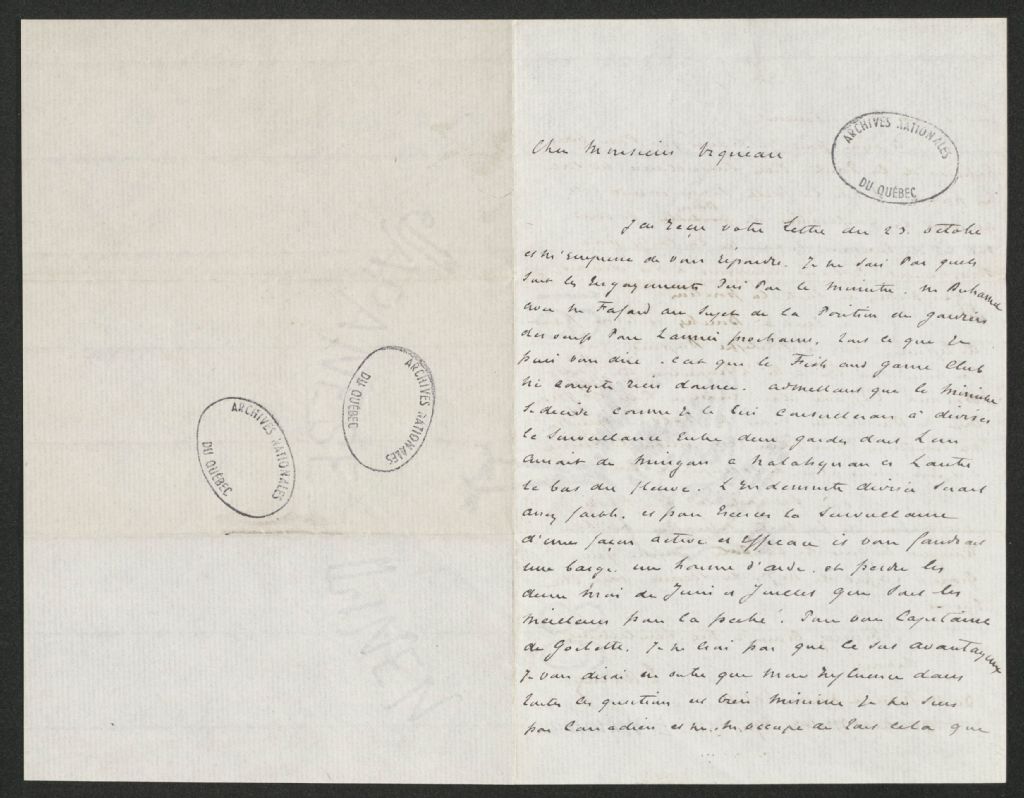 ARCHIVES NATIONALES
DU QUÉBEC
ARCHIVES NATIONALES
DU QUÉBEC
ARCHIVES NATIONALES
DU QUÉBEC
Cher Monsieur Vigneau
J'ai reçu votre Lettre du 23. octobre
et m'empresse de vous répondre. Je ne sais Par quels
sont les Engagements Pris Par le Ministre.
avec Mr Fafard au sujet de la Position de gardien
des oeufs Pour L'année prochaine, tout ce que Je
puis vous dire. c'est que le Fish and Game Club
ne compte rien donner. admettant que le Ministre
se decide comme Je le lui conseillerai à diviser
la Surveillance Entre deux gardes dont L'un
aurait de Mingan a Natashquan et L'autre
le bas du fleuve. L'Indemnité divisée serait
assez faible. et pour Exercer la Surveillance
d'une façon active et Efficace il vous faudrait
une barge. un homme d'aide. et perdre les
deux Mois de Juin et Juillet que sont les
meilleurs pour la pêche. Pour vous Capitaine
de Goelette. Je ne crois pas que ce soit avantageux
Je vous dirai en outre que mon Influence dans
toutes les question est bien minime Je ne suis
pas Canadien et ne m'occupe de tout cela que